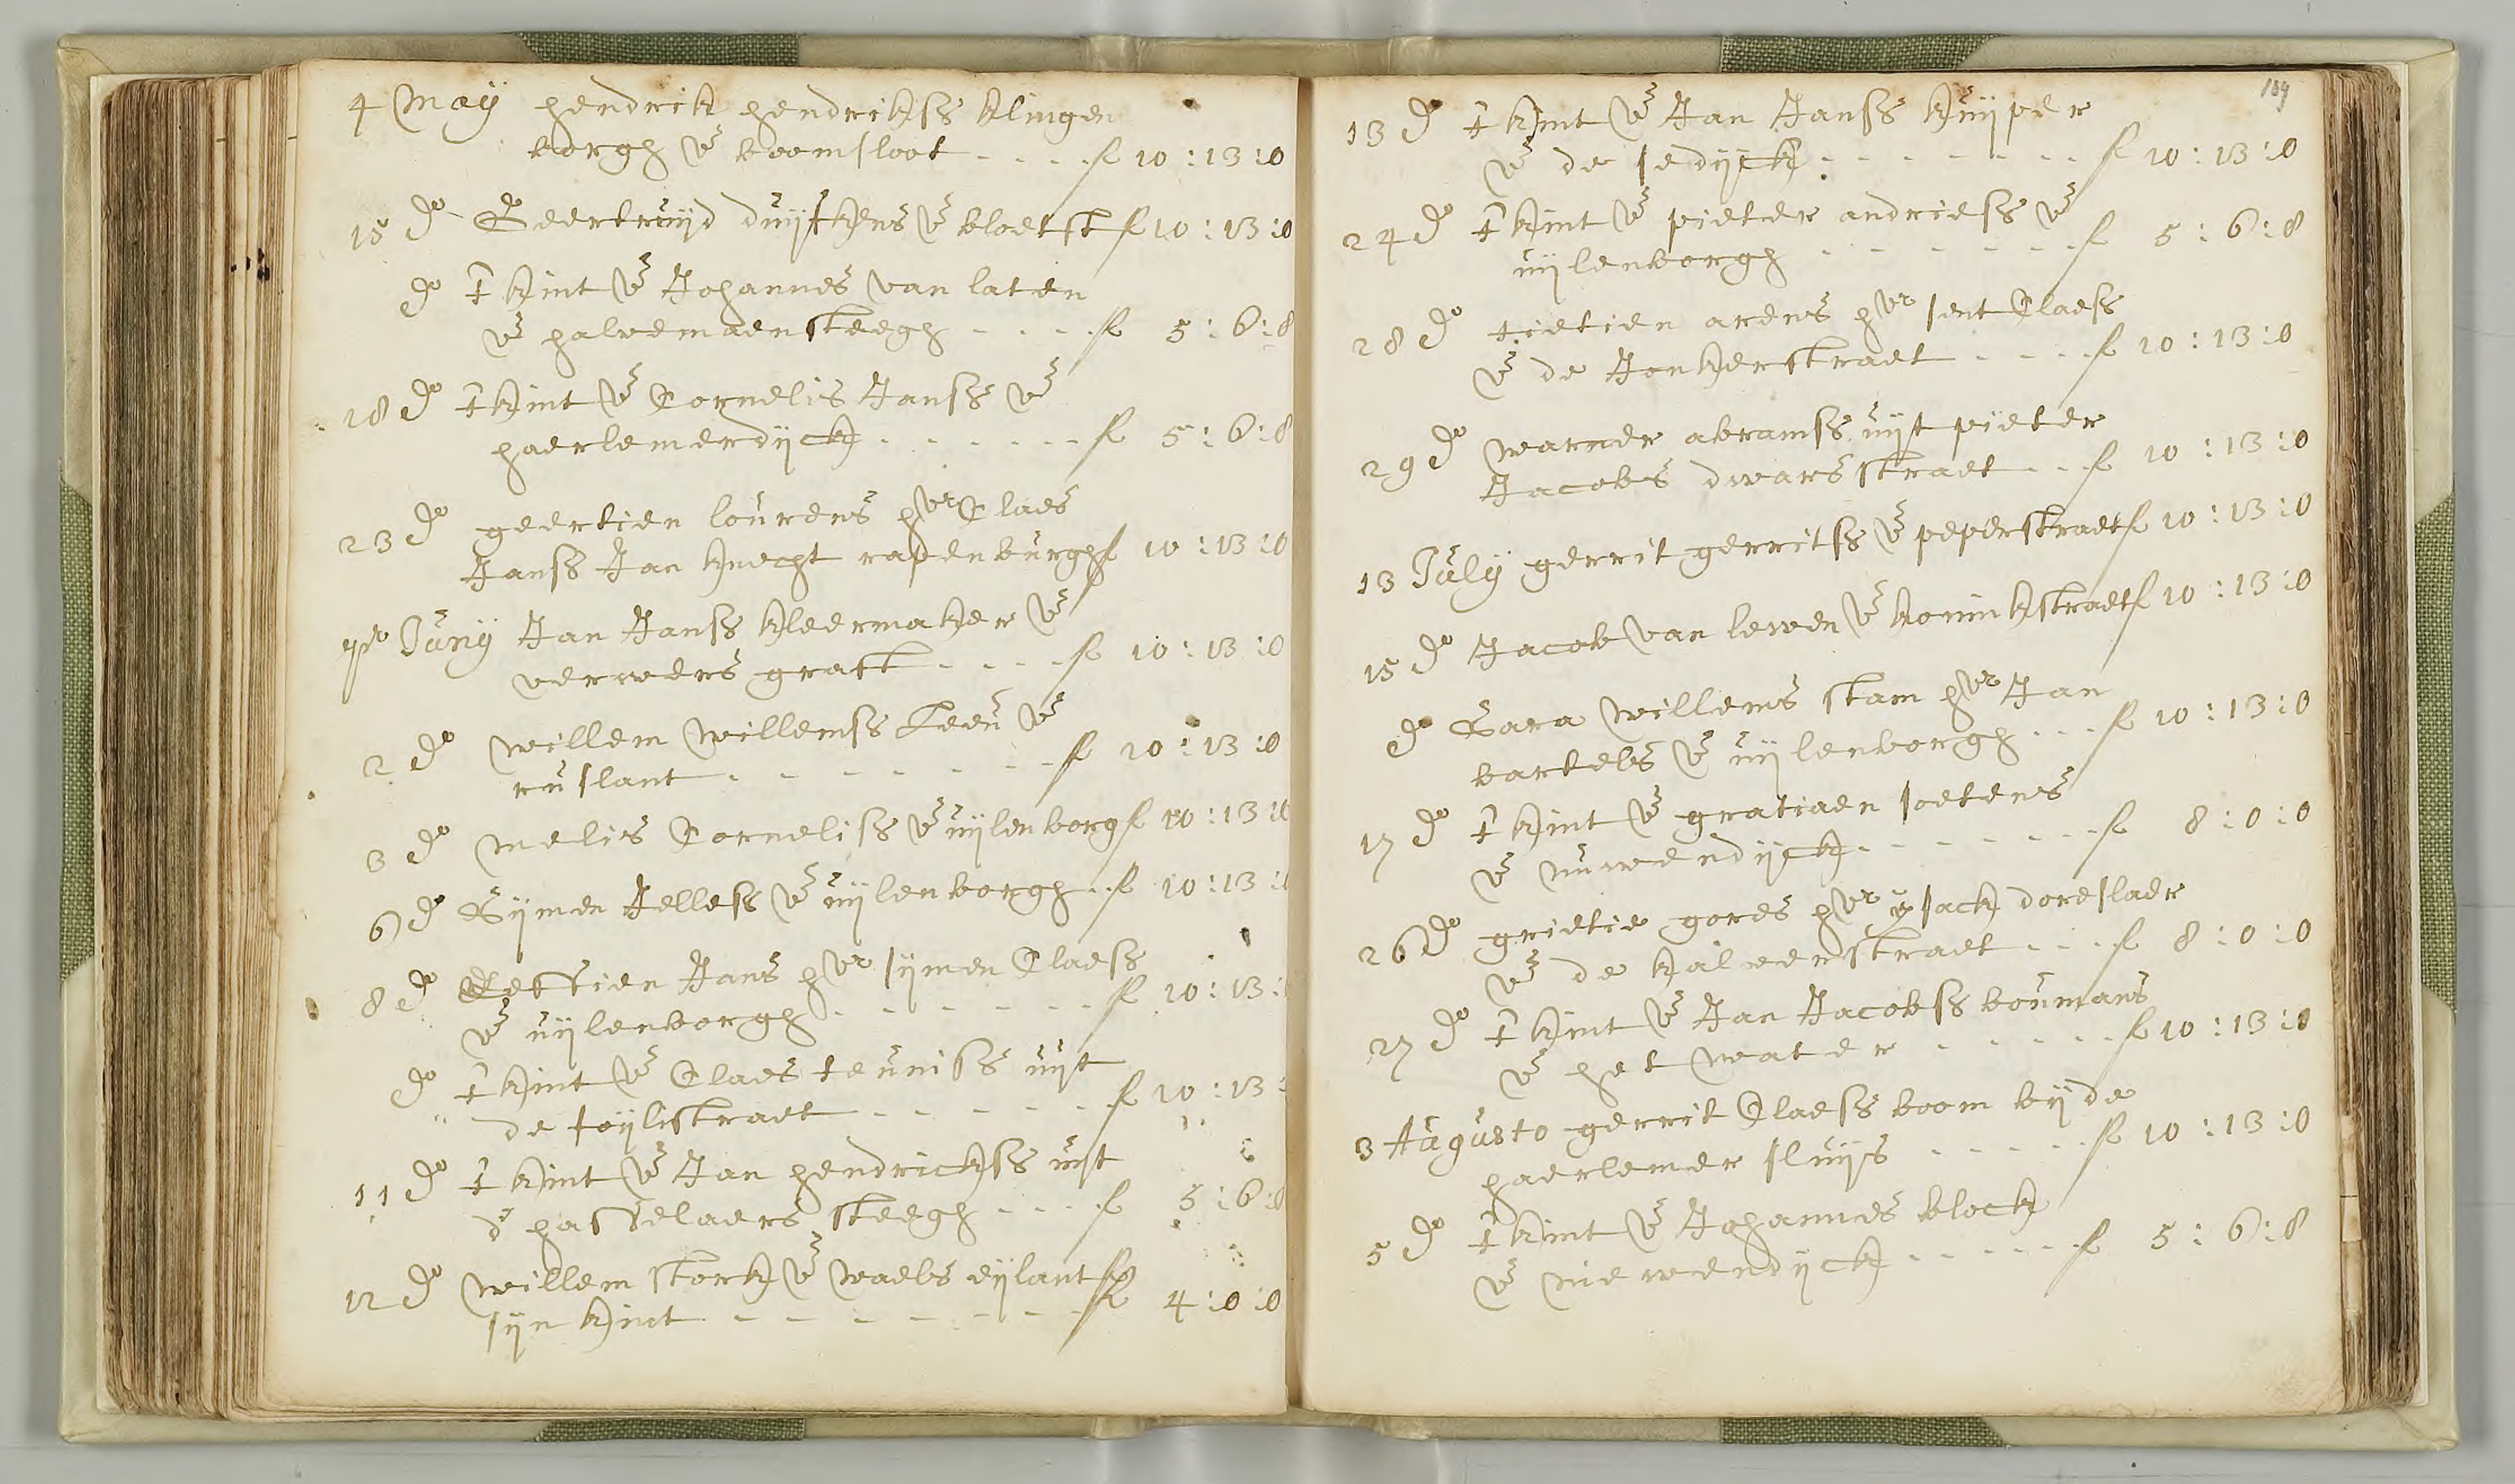 4 Maÿ hendrik hendrikss klingen
borgh v boomsloot - - - - f 10 : 13 : 0
15 do Geertruijd duijfkens v bloetst f 10 : 13 : 0
do t kint v Johannes van laten
v halvemaensteegh - - - - f 5 : 6 : 8
18 do t kint v Cornelis Janss v
haerlemerdijck - - - - - - f 5 : 6 : 8
23 do geertien lourens hvr Claes
Janss Jan knecht rapenburgh f 10 : 13 : 0
pr Junÿ Jan Janss kleermaker v
verwers graft - - - - f 10 : 13 : 0
2 do willem willemss Leeu v
ruslant - - - - - - - f 10 : 13 : 0
3 do melis Corneliss v uijlenborg f 10 : 13 : 0
6 do Sijmen Jelless v uijlenborgh - - f 10 : 13 :
8 do Jans hvr sijmen Claess
v uijlenborgh - - - - - - f 10 : 13 :
do t kint v Claes teuniss uijt
de straet - - - - - - f 10 : 13 :
11 do t kint v Jan hendrickss uijt
d hasselaers steegh - - - f 5 : 6 : 8
12 do willem stork v waels eijlant
sijn kint - - - - - - - f 4 : 0 : 0
189
13 do t kint v Jan Janss kuijper
v de sedijck - - - - - - - f 10 : 13 : 0
24 do t kint v pieter andriess v
uijlenborgh - - - - - - f 5 : 6 : 8
28 do tietien arens hvr sent Claess
v de Jonkerstraet - - - - f 10 : 13 : 0
29 do warner abramss uijt pieter
Jacobs dwarsstraet - - - f 10 : 13 : 0
13 Julÿ gerrit gerritss v peperstraet f 10 : 13 : 0
15 do Jacob van lewen v koninkstraet f 10 : 13 : 0
do Sara willems stam hvr Jan
bartels v uijlenborgh - - - f 10 : 13 : 0
17 do t kint v gratiaen soetens
v nuwendijck - - - - - - f 8 : 0 : 0
26 do grietie gores hvr ijsack doreslaer
v de kalverstraet - - - f 8 : 0 : 0
27 do t kint v Jan Jacobss boumans
v het water - - - - - f 10 : 13 : 0
3 Augusto gerrit Claess boom bij de
haerlemer sluijs - - - - - f 10 : 13 : 0
5 do t kint v Johannes block
v niewendijck - - - - - f 5 : 6 : 8